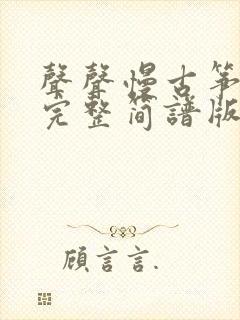 聲聲慢古筝
完整简譜版
顧言言.